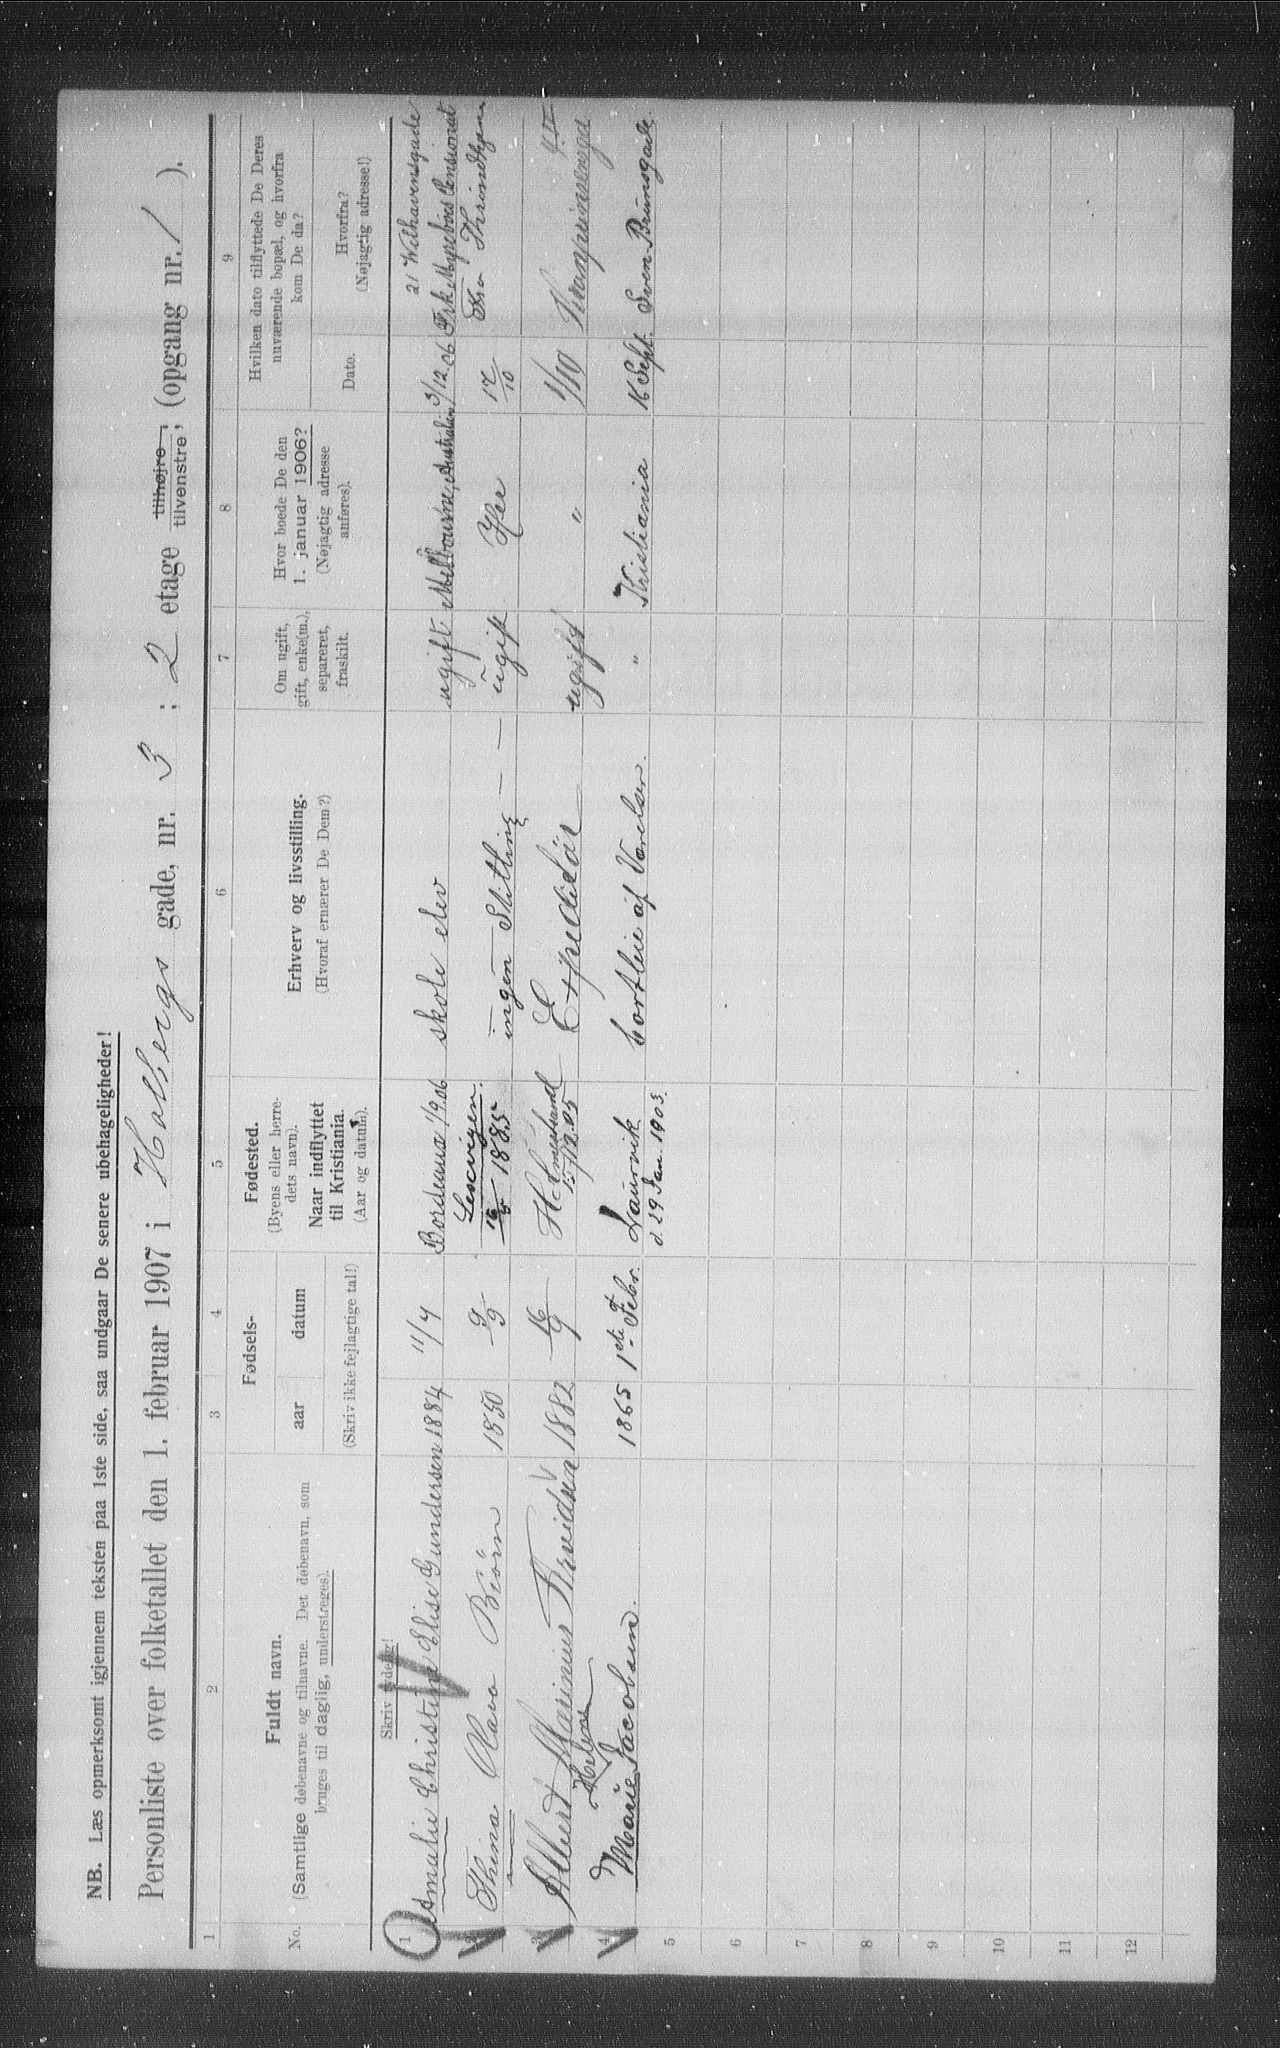 NB. Læs opmerksomt igjennem teksten paa 1ste side, saa undgaar De senere ubehageligheder!
Personliste over folketallet den 1. februar 1907 i Holbergs gade, nr. 3 ; 2 etage tilhøjre, tilvenstre, (opgang nr. / ).
1 2 3 4 5 6 7 8 9
No.
Fuldt navn.
(Samtlige døbenavne og tilnavne. Det døbenavn, som
bruges til daglig, understreges).
Fødsels-
aar datum
(Skriv ikke fejlagtige tal!)
Fødested.
(Byens eller herre-
dets navn).
Naar indflyttet
til Kristiania.
(Aar og datum).
Erhverv og livsstilling.
(Hvoraf ernærer De Dem?)
Om ugift,
gift, enke(m.),
separeret,
fraskilt.
Hvor boede De den
1. januar 1906?
(Nøjagtig adresse
anføres).
Hvilken dato tilflyttede De Deres
nuværende bopæl, og hvorfra
kom De da?
Dato.
Hvorfra?
(Nøjagtig adresse!)
Skriv tydelig!
1 Amalie Christine Elise Gundersen 1884 11/4 Bordeaux 1/9.06 skole elev ugift Melbourne, Australien 3/12.06 21 Wilhavensgade
Frk. Myrebøes Pensionat
2 Thina Olava Biörn 1850 9/9 16/5 1885 ingen Stilling ugift Her 17/10 Fra
3 Albert Marinius 1882 16/9 Helmestrand 15/12.05 Expeditör ugift " 1/10
4 Helene
Marie Jacobsen. 1865 1ste Febr. Laurvik
d. 29 Jan. 1903. bortleie af Værelser. " Kristiania 16 Sept. Sven Brunsgade.
5
6
7
8
9
10
11
12